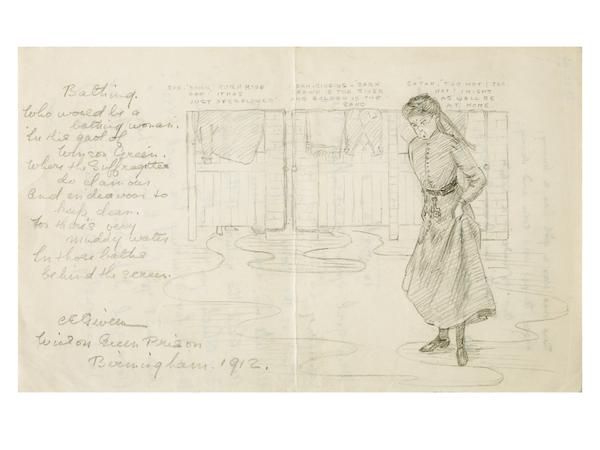 Bathing.
Who would be a
bathing woman.
In the gaol of
Winson Green.
Where the Suffragettes
do clamour
And endeavour to
keep clean.
For there's very
muddy water
In those baths
behind the screen.
Winson Green Prison
Birmingham. 1912.
IT HAS
JUST OVERFLOWED"
SINGING - DARK
BROWN IS THE RIVER
AND GOLDEN IS THE
SAND
SATAN, "TOO HOT! TOO
HOT! I MIGHT
AS WELL BE
AT HOME.